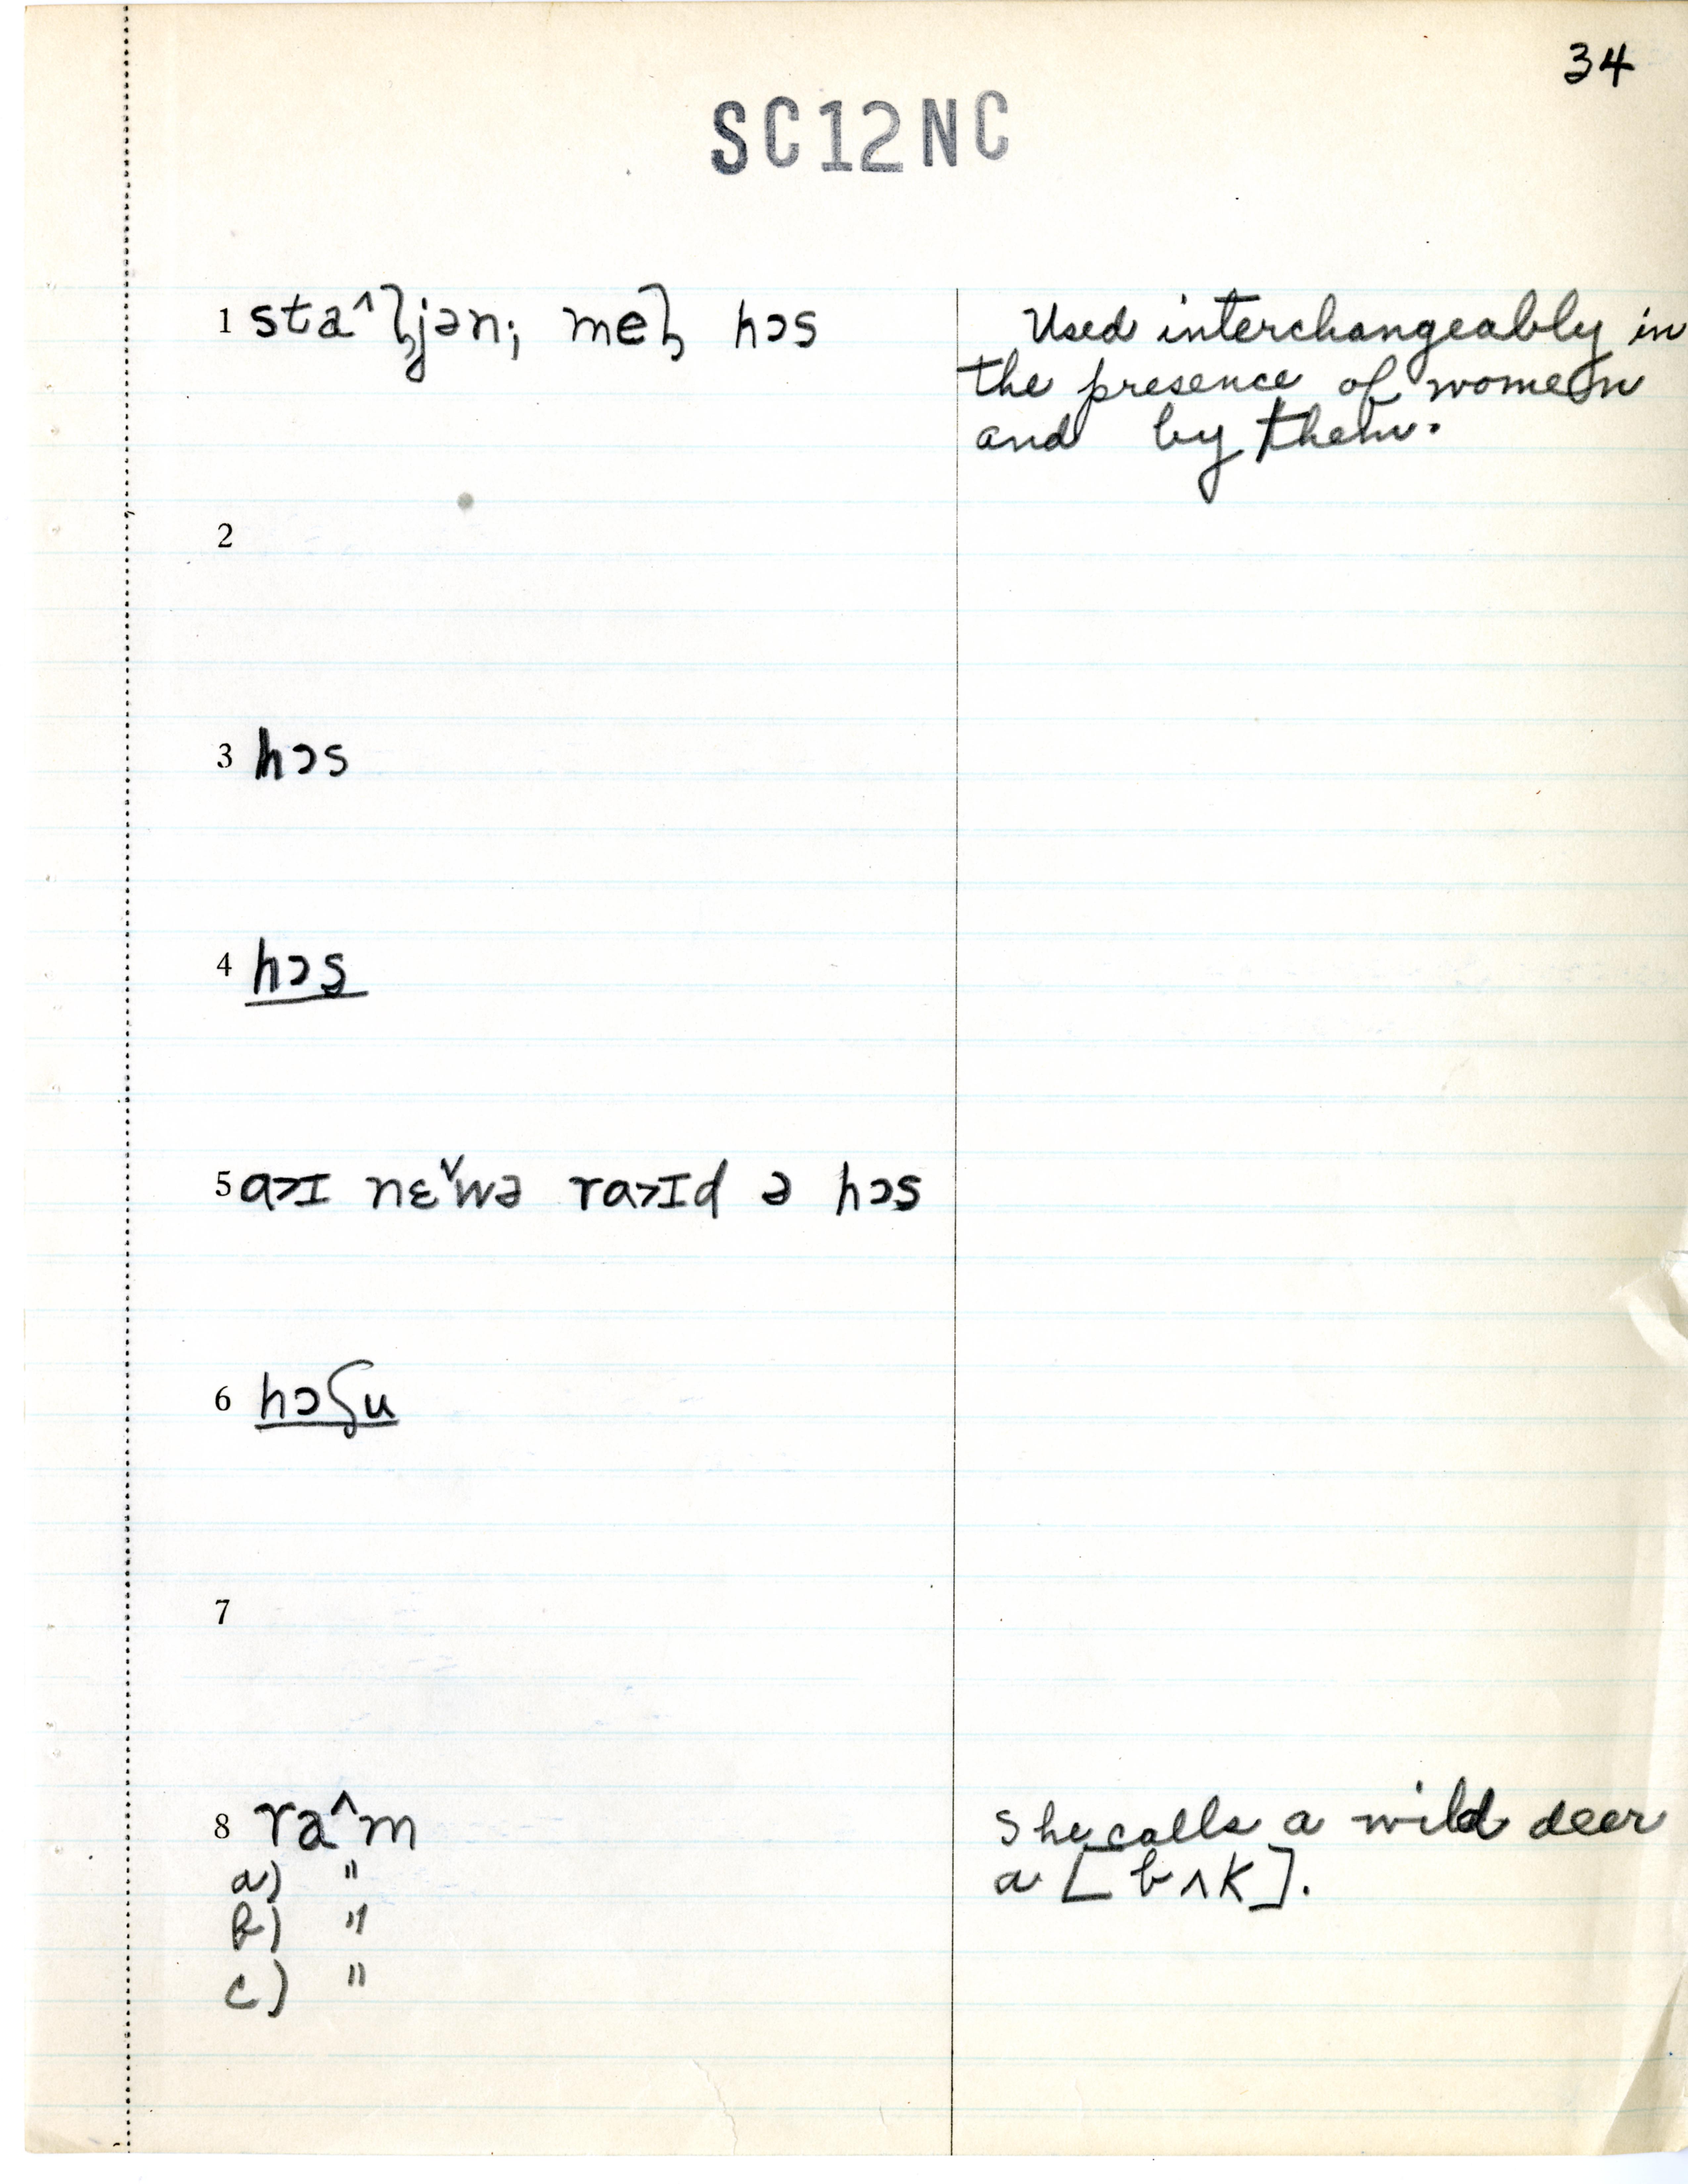 34
SC12NC
1 sta^ɮjən; meɮ hɔs
Used interchangeably in
the presence of women
and by them.
2
3 hɔs
4 hɔs
5 a>ɪ nɛˇwə ra>ɪd ə hɔs
6 hɔʕu
7
8 ra^m
She calls a wild deer
a) "
a [bʌk].
b) "
c) "